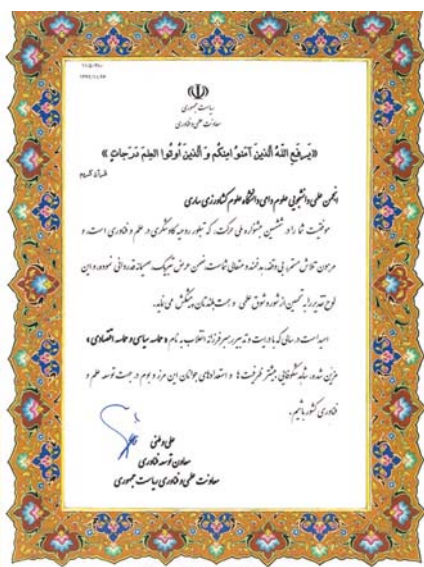 ریاست جمهوری
معاونت علمی و فناوری
«یَرفَعِ اللهُ الَّذینَ آمَنوُ امِنکُم وَ الَّذینَ أوُتُوا العِلمَ دَرَجاتٍ»
قرآن کریم
انجمن علمی دانشجویی علوم دامی دانشگاه علوم کشاورزی ساری
موفقیت شما را در ششمین جشنواره ملی حرکت، که تبلور روحیه کاوشگری در علم و فناوری است، و
مرهون تلاش مستمر، بی وقفه، هدفمند و متعالی شماست، ضمن عرض تبریک، صمیمانه قدردانی نموده و این
لوح تقدیر را به تحسین از شور و شوق علمی و همت بلندتان پیشکش می نماید.
امید است در سالی که با درایت و تدبیر رهبر فرزانه انقلاب به نام «حماسه سیاسی و حماسه اقتصادی»
مزین شده، شاهد شکوفایی بیشتر ظرفیت ها و استعدادهای جوانان این مرز و بوم در جهت توسعه علم و
فناوری کشور باشیم.
علی وطنی
معاون توسعه فناوری
معاونت علمی و فناوری ریاست جمهوری